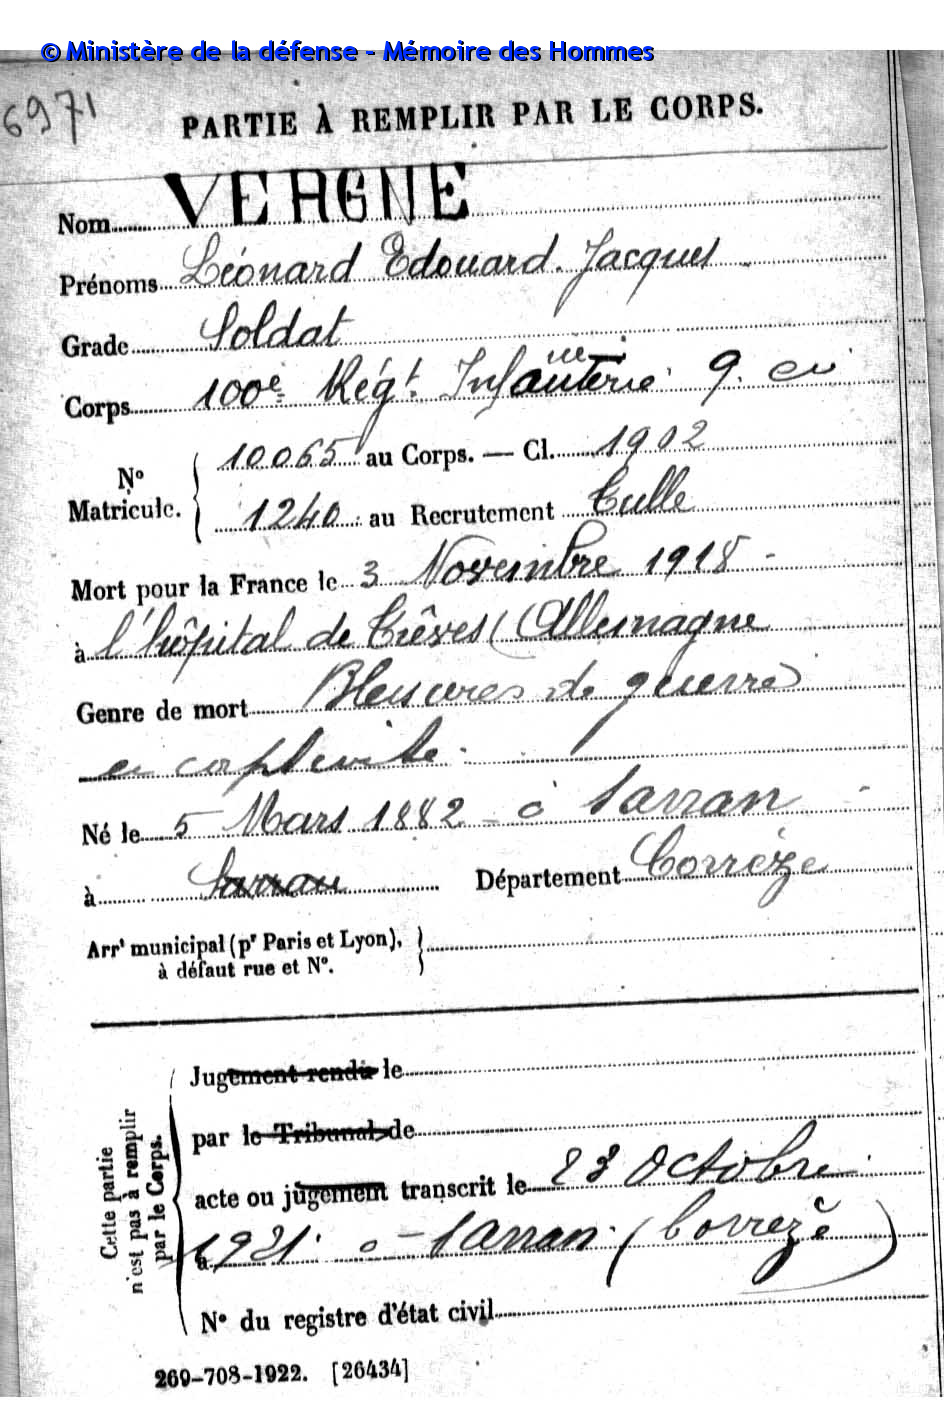 © Ministère de la défense - Mémoire des Hommes
6971
PARTIE À REMPLIR PAR LE CORPS.
Nom VERGNE
Prénoms Léonard Edouard Jacques
Grade Soldat
Corps 100e Régt. Infanterie 9. cie
N° Matricule. 10065 au Corps. — Cl. 1902
1240 au Recrutement Tulle
Mort pour la France le 3 Novembre 1918
à l'hôpital de Trêves (Allemagne
Genre de mort Blessures de guerre
en captivité
Né le 5 Mars 1882 à Sarran
à Sarran Département Corrèze
Arrt municipal (pr Paris et Lyon),
à défaut rue et N°.
Cette partie
n'est pas à remplir
par le Corps.
Jugement rendu le
par le Tribunal de
acte ou jugement transcrit le 23 Octobre
à 1921 à Sarran (Corrèze)
N° du registre d'état civil
269-708-1922. [26434]